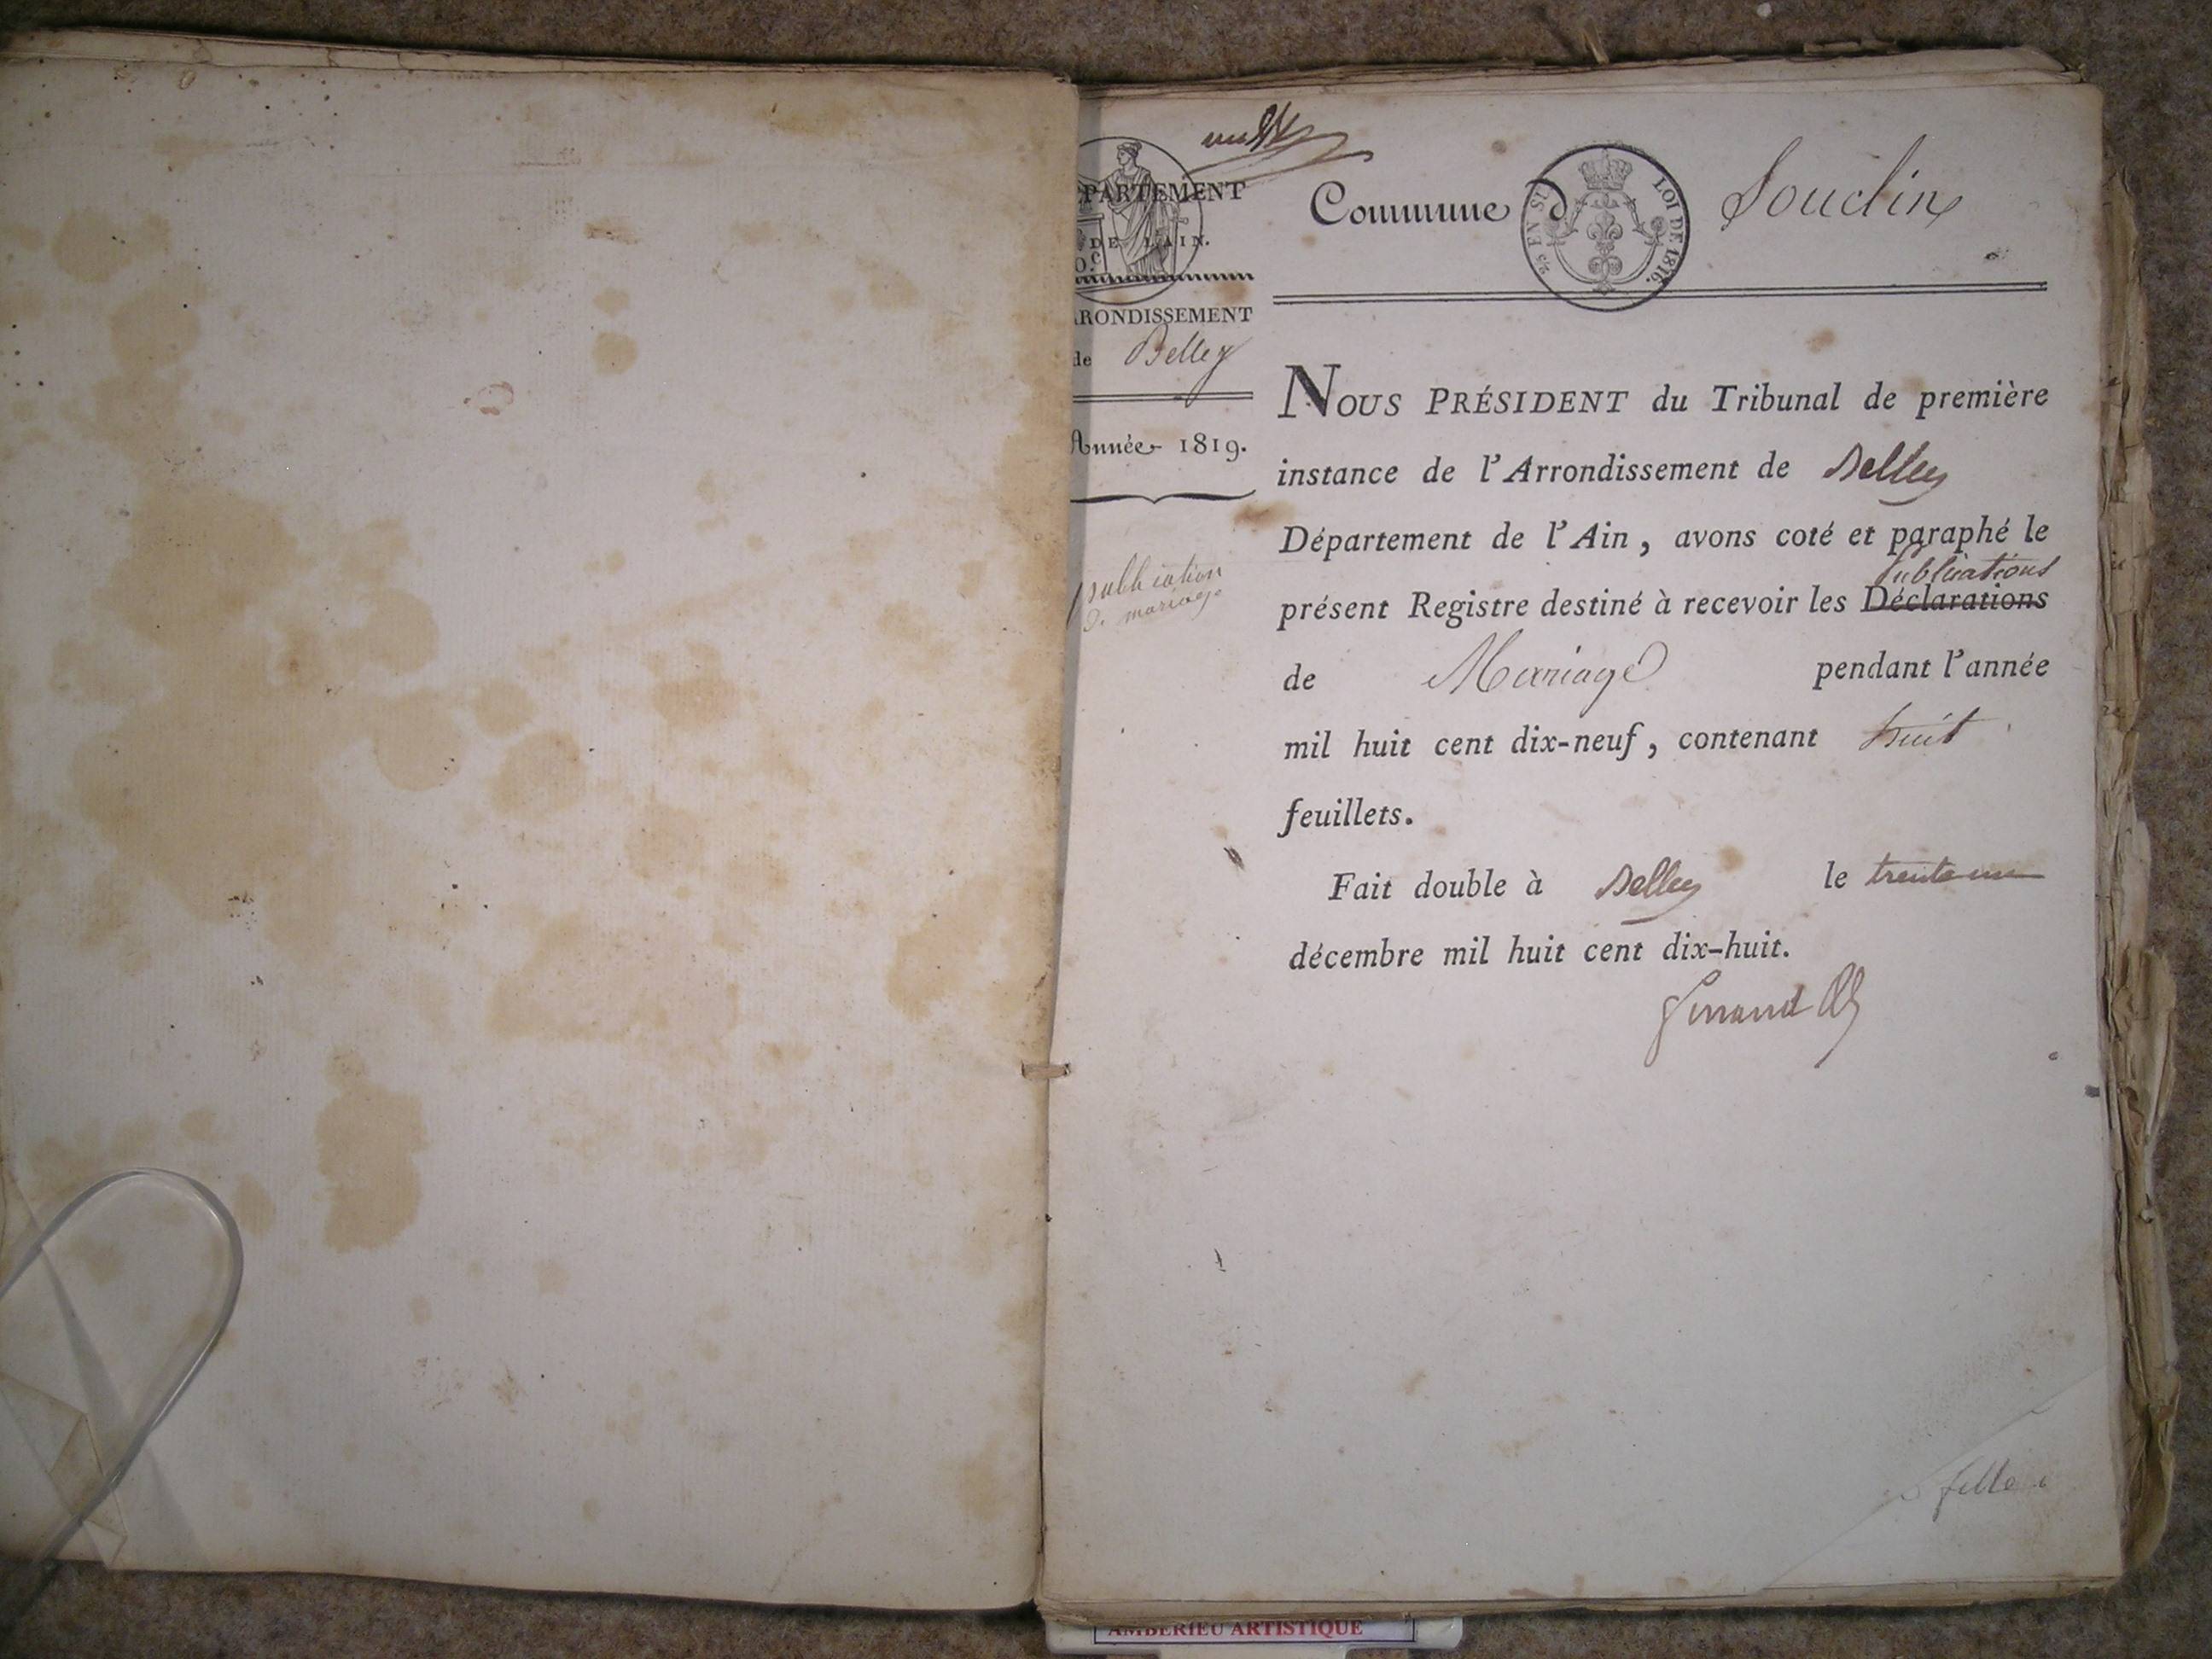 DÉPARTEMENT
DE L'AIN.
0.c
ARRONDISSEMENT
de Belley
Année 1819.
publication
de mariage
Commune d Souclin
EN SUS
LOI DE 1816.
NOUS PRÉSIDENT du Tribunal de première
instance de l'Arrondissement de Belley
Département de l'Ain, avons coté et paraphé le
Publications
présent Registre destiné à recevoir les Déclarations
de Mariage pendant l'année
mil huit cent dix-neuf, contenant huit
feuillets.
Fait double à Belley le trente un
décembre mil huit cent dix-huit.
AMBERIEU ARTISTIQUE